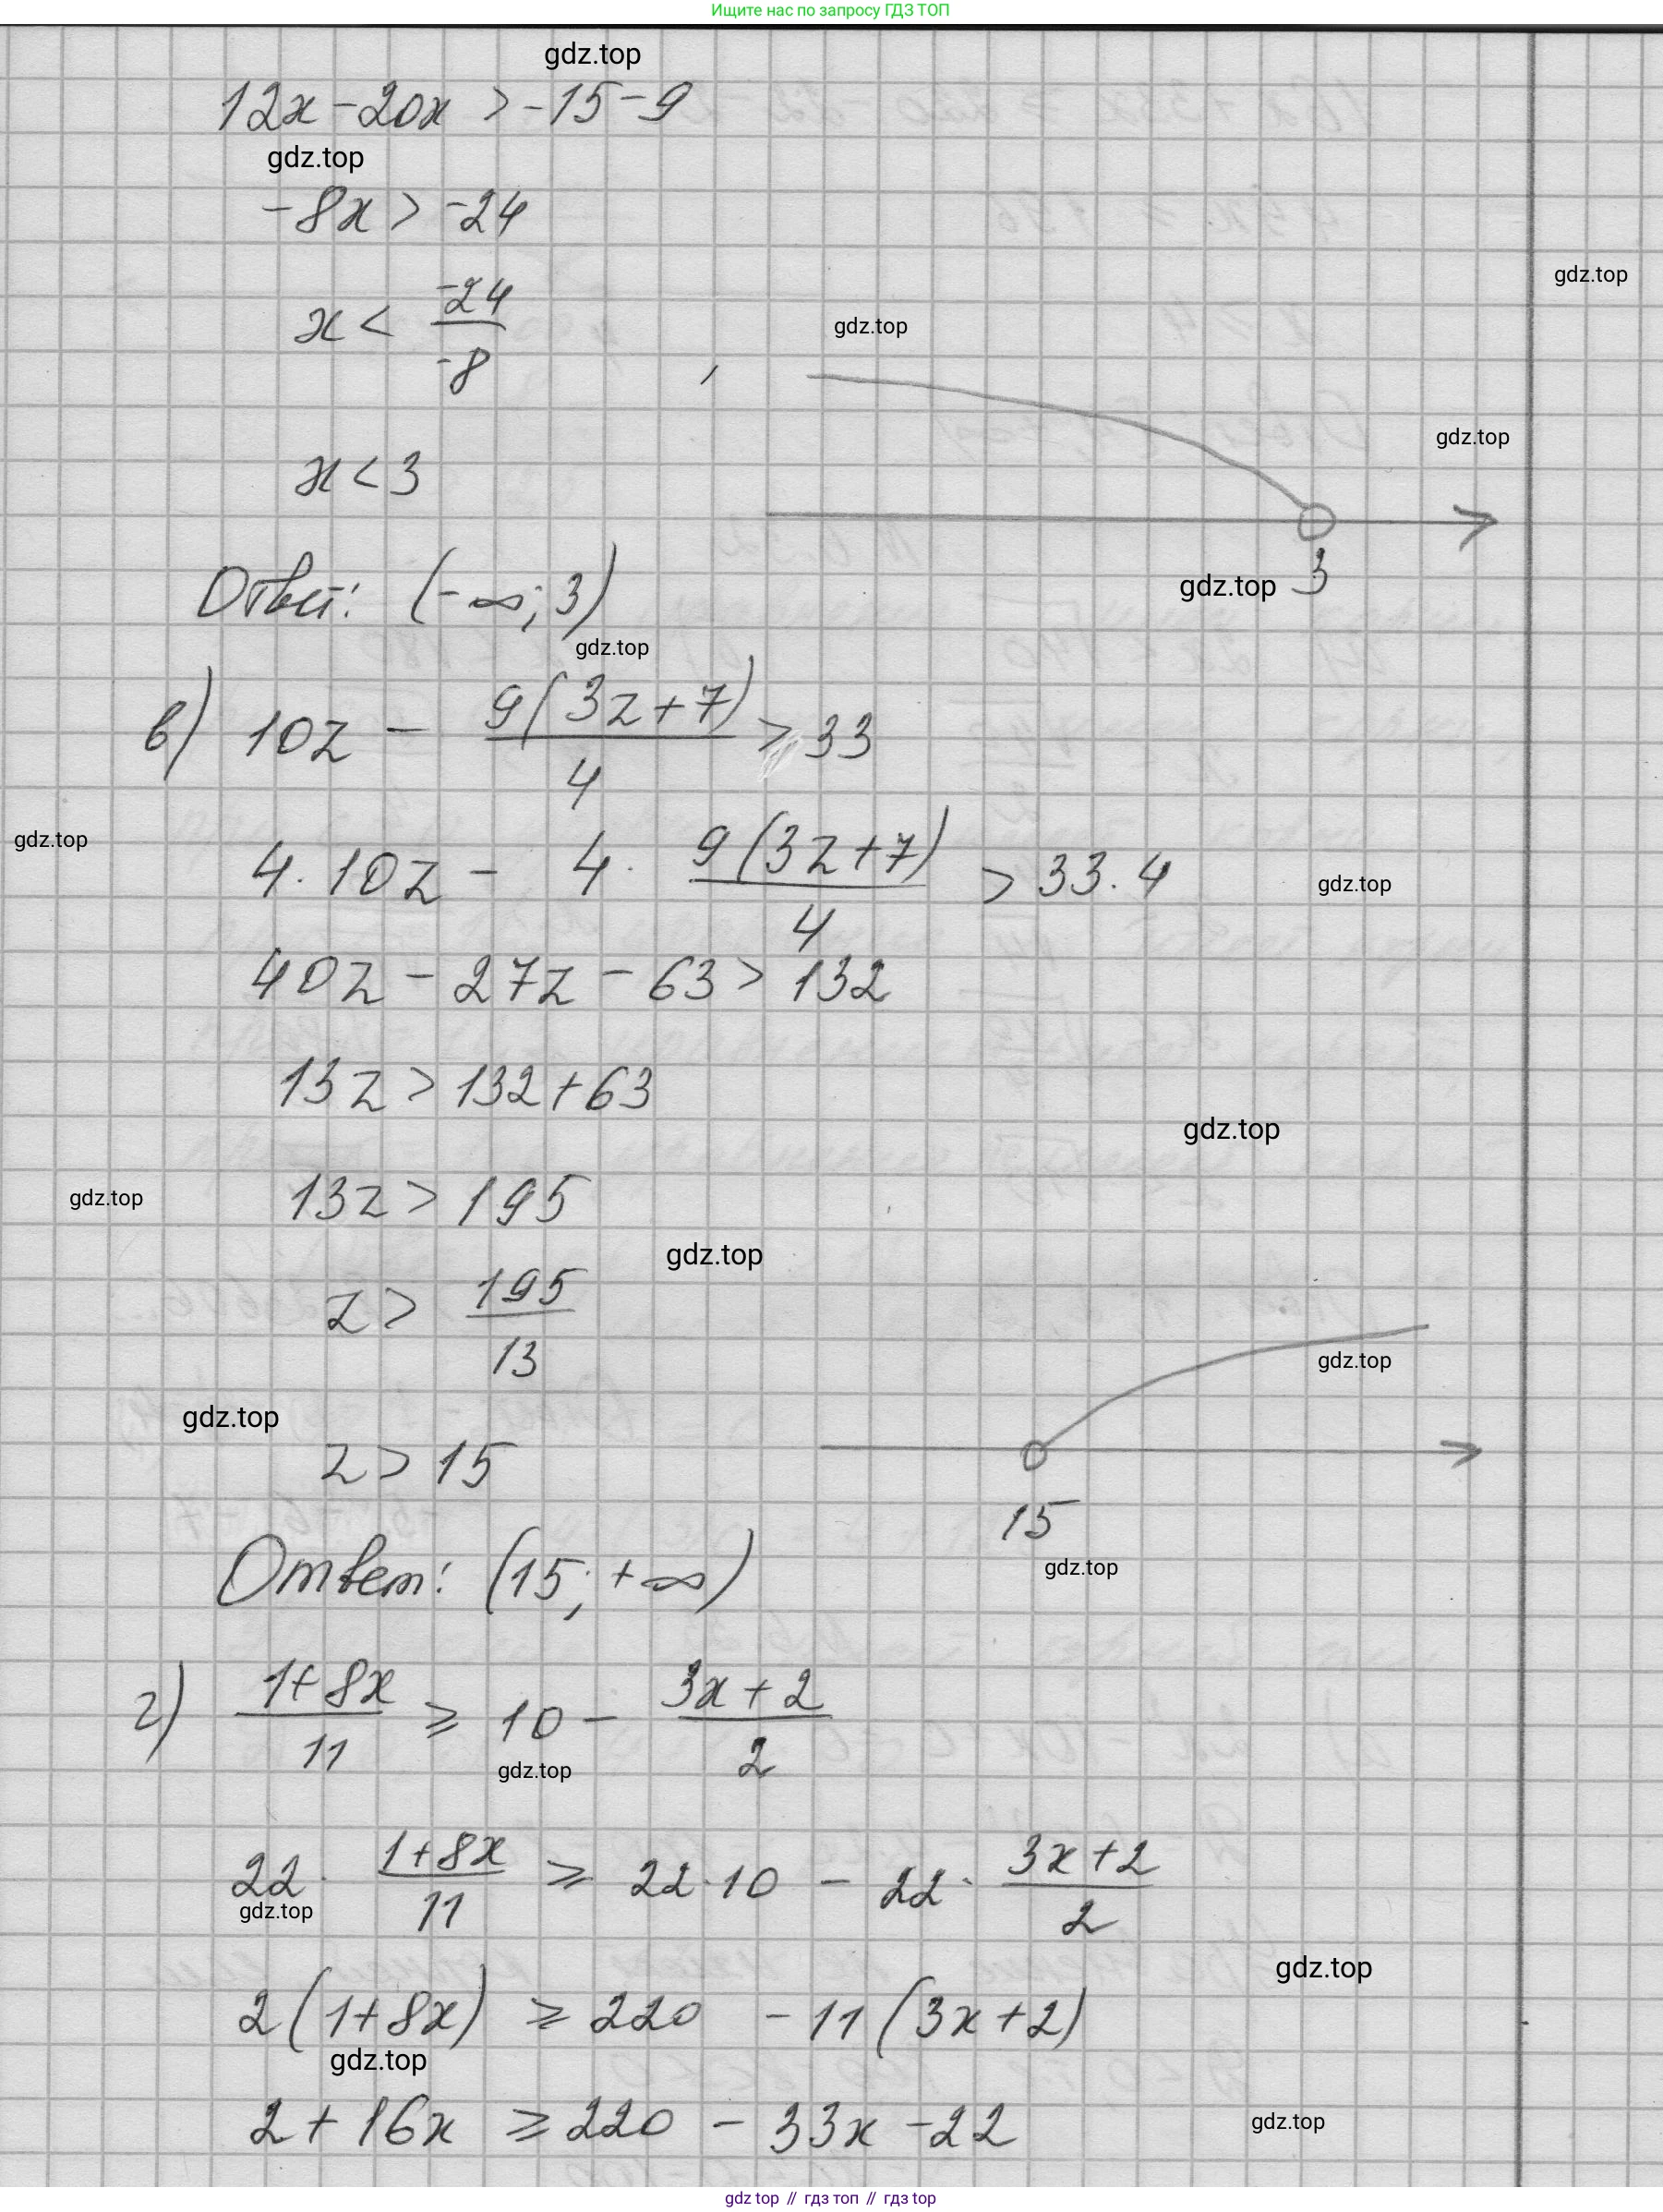 Ищите нас по запросу ГДЗ ТОП
gdz.top
12x - 20x > -15 - 9
gdz.top
-8x > -24
gdz.top
x < -24/-8
gdz.top
gdz.top
x < 3
3
gdz.top
Ответ: (-∞; 3)
gdz.top
в) 10z - 9(3z+7)/4 > 33
gdz.top
4·10z - 4· 9(3z+7)/4 > 33·4
gdz.top
40z - 27z - 63 > 132
13z > 132 + 63
gdz.top
gdz.top
13z > 195
gdz.top
z > 195/13
gdz.top
gdz.top
z > 15
15
gdz.top
Ответ: (15; +∞)
г) 1+8x/11 ⩾ 10 - 3x+2/2
gdz.top
22· 1+8x/11 ⩾ 22·10 - 22· 3x+2/2
gdz.top
gdz.top
2(1+8x) ⩾ 220 - 11(3x+2)
gdz.top
2 + 16x ⩾ 220 - 33x - 22
gdz.top
gdz top // гдз топ // гдз top